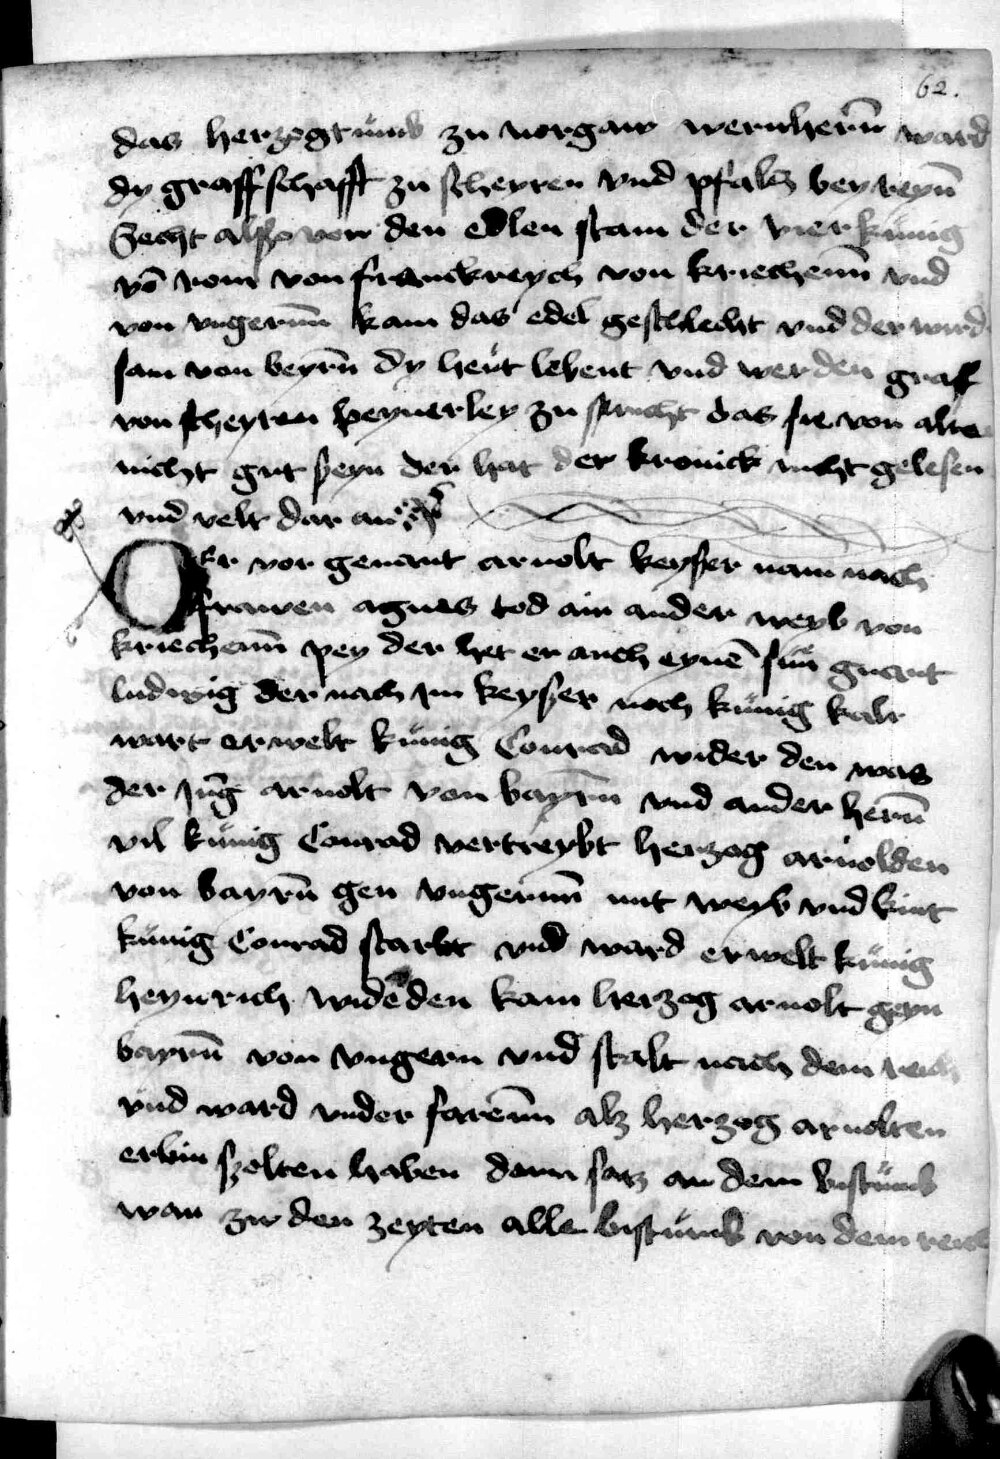 62.
das herzogtumb zu norgaw wernherñ ward
dy graffschafft zu scheyren vnd pfaltz bey reyñ
Secht alßo von den edlen stam der vier künig
võ rom von franckreych von kriechenñ vnd
von vngernn kam das edel geschlecht vnd der wird
sam von beyrñ dy heüt lebent vnd werden graff
von scheyren keynerley zu spricht das sie von alter
nicht gut seyn der hat der kronick nicht gelesen
vnd velt dar an
Der vor genant arnolt keyser nam nach
frawen agnes tod ain ander weyb von
kriechenñ pey der het er auch eynē sün gnant
ludwig der nach jm keyser noch künig
wart erwelt künig Conrad wider den was
der jūg arnolt von bayrñ vnd ander herñ
vil künig Conrad vertreybt herzog arnolden
von bayrñ gen vngernñ mit weyb vnd kint
künig Conrad starbt vnd ward erwelt künig
heynrich widē den kam herzog arnolt geyn
bayrñ von vngern vnd stalt nach dem reich
vnd ward vnder farenn alz herzog arnolten
erbin szolten haben dann satz an dem bistumb
wan zw den zeyten alle bistumb von dem reich